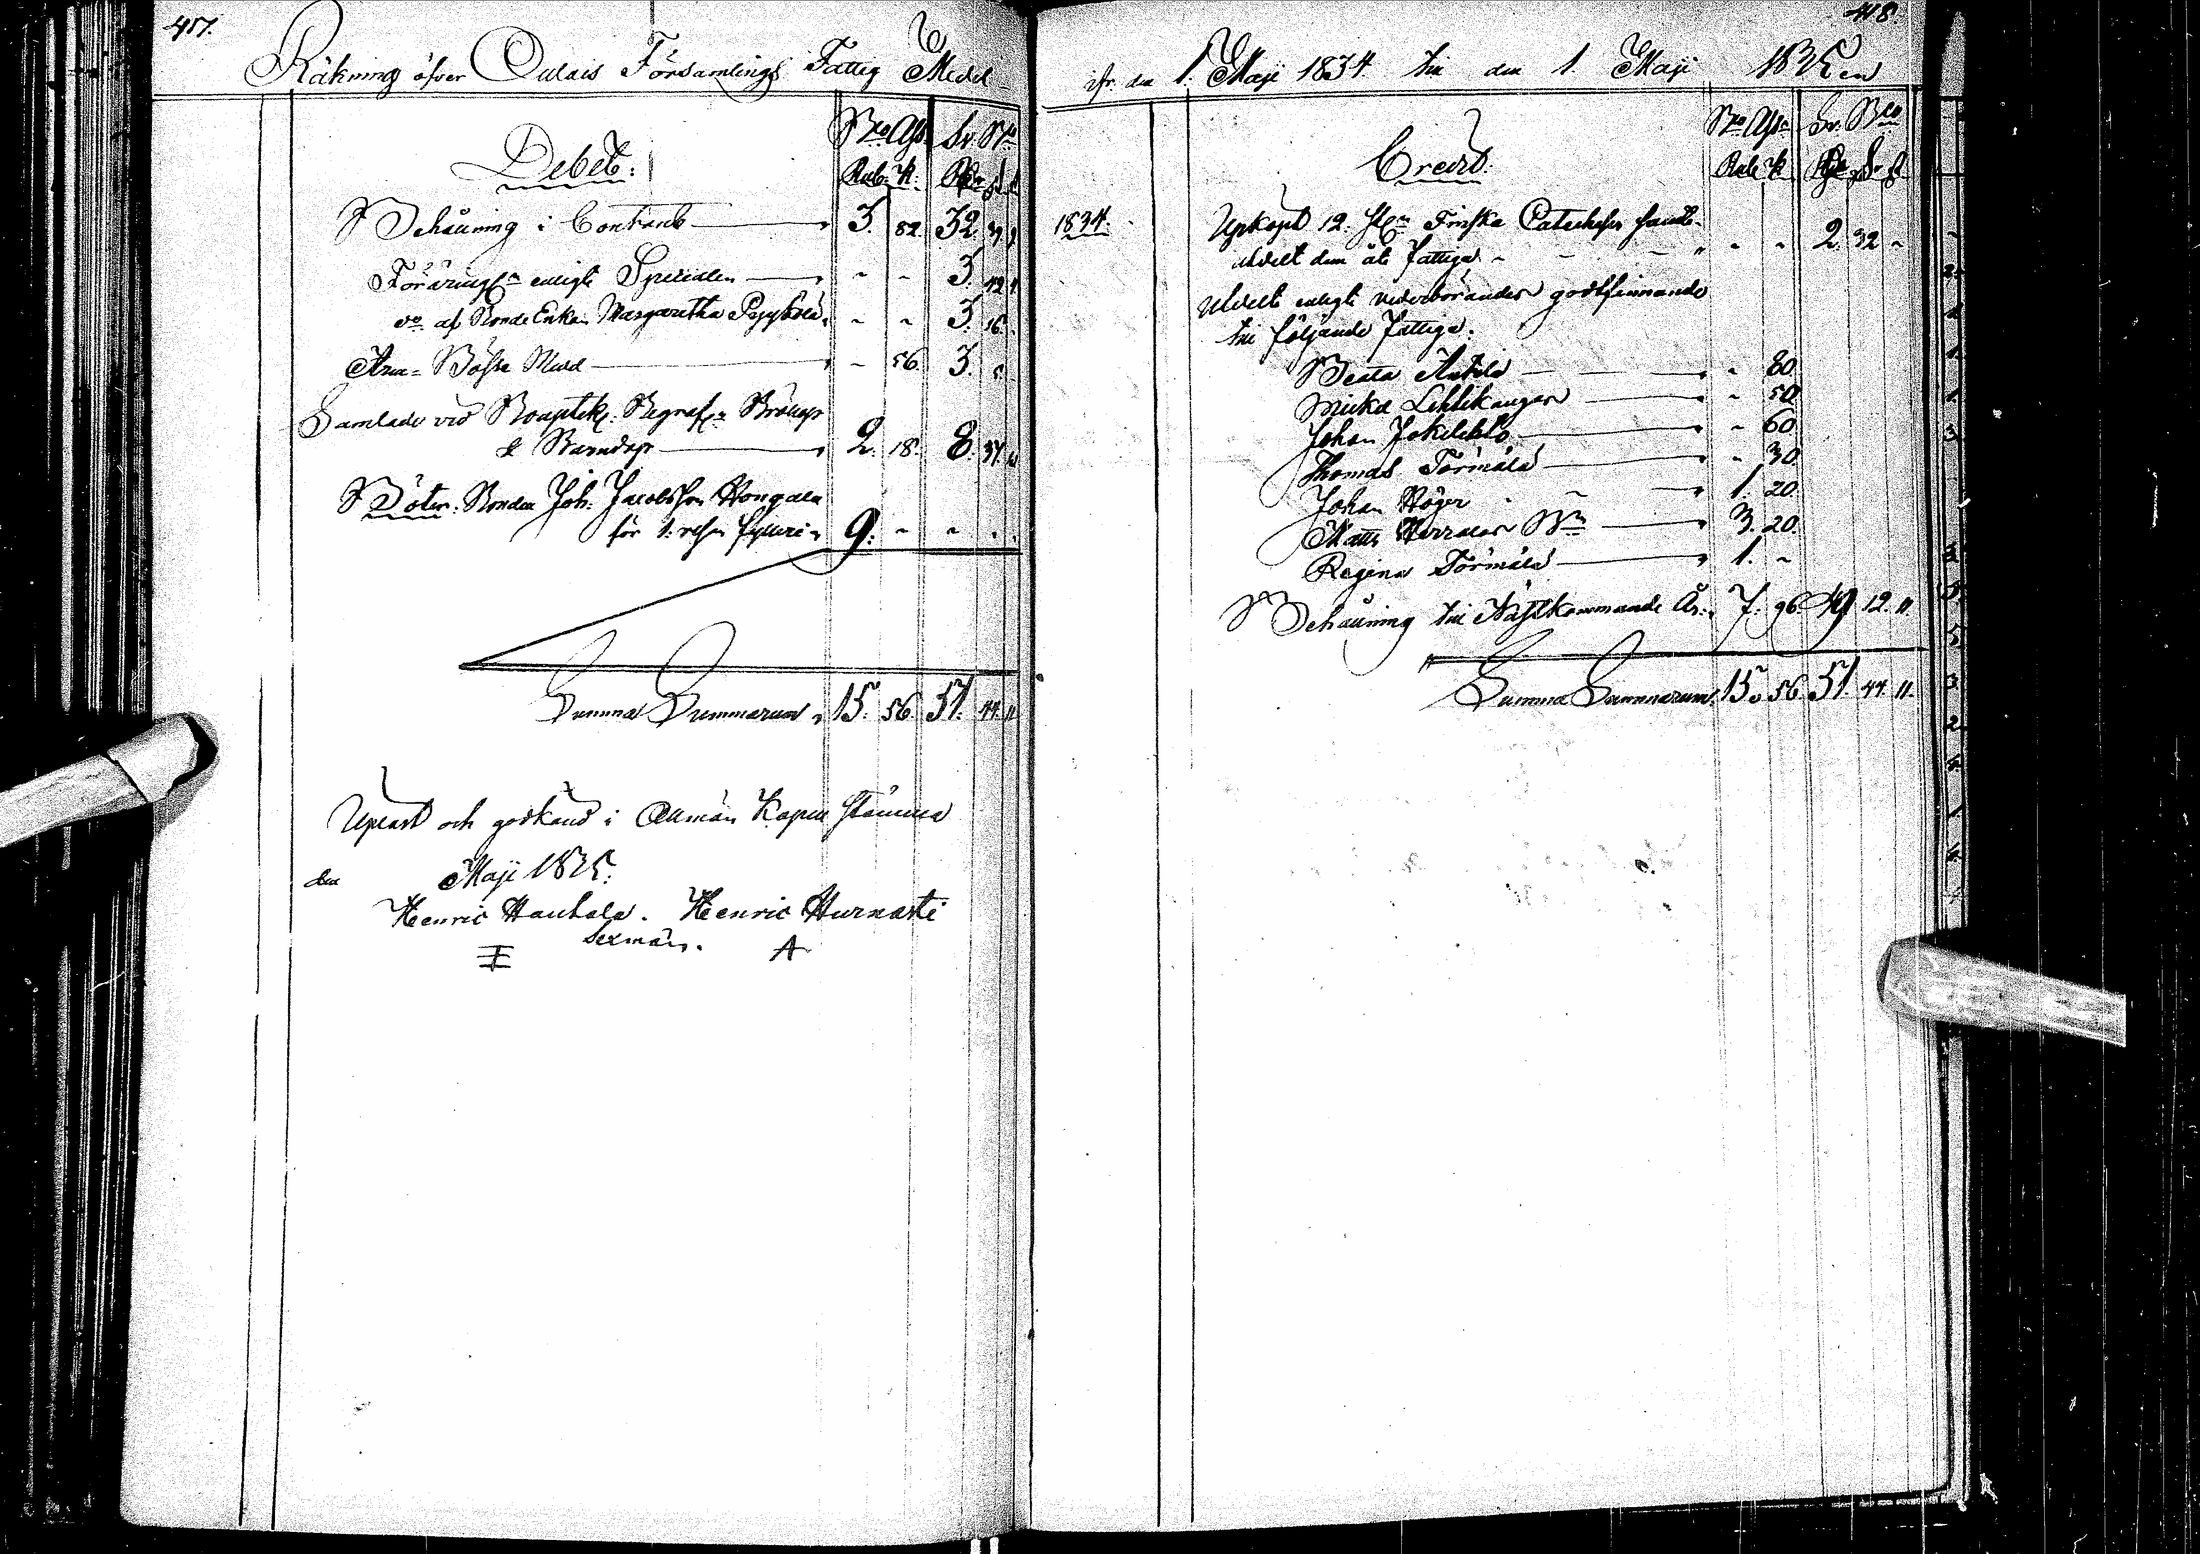 417.
Räkning öfver Oulais Församlings Fattig Medel
Debet.
Bco Ass. Sv. Bco
Rub. K. Rdr
Behållning i Contant 3. 82. 32. 39
Föräringar enligt Specialen - - 3. 42
do af Bonde Enkan Margaretha - - 3. 16.
Arm-Bösse Med - 56. 3.
Samlade vid Begrafn Bröllop
& Barndop 2. 18. 8. 37.
Böter. Bonden Joh. Jacobsson Hongala
för 1: resan fylleri 9. - -
Summa Summarum 15. 56. 51. 44. 11
Upläst och godkänd i Allmän Kapell Stämma
den Maji 1835.
Henric Hauhala. Henric Hurnasti
Sexmän.
A
418.
fr. den 1. Maji 1834 till den 1. Maji 1835
Credit.
Bco Ass. Sv. Bco
Rub. K. Rdr
1834. Upköpt 12. St. Finska Catecheser samt
utdelt dem åt fattiga - - 2. 32 -
Utdelt enligt vederbörandes godtfinnande
till följande fattiga.
Beata Anttila - 80.
Micka Lehtikangas - 50.
Johan Jokilehto - 60.
Thomas Törmälä - 30.
Johan Höger 1. 20.
Matts 3. 20.
Regina Törmälä 1. -
Behållning till Nästkommande År 7. 96. 49 12. 11.
Summa Summarum. 15. 56. 51. 44. 11.